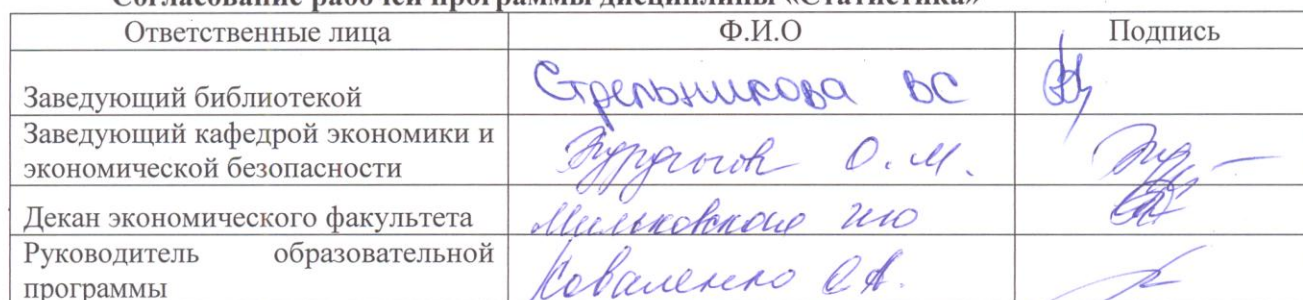 Согласование рабочей программы дисциплины «Статистика»
Ответственные лица Ф.И.О Подпись
Заведующий библиотекой Стрельникова ВС
Заведующий кафедрой экономики и
экономической безопасности О.М.
Декан экономического факультета
Руководитель образовательной
программы Коваленко